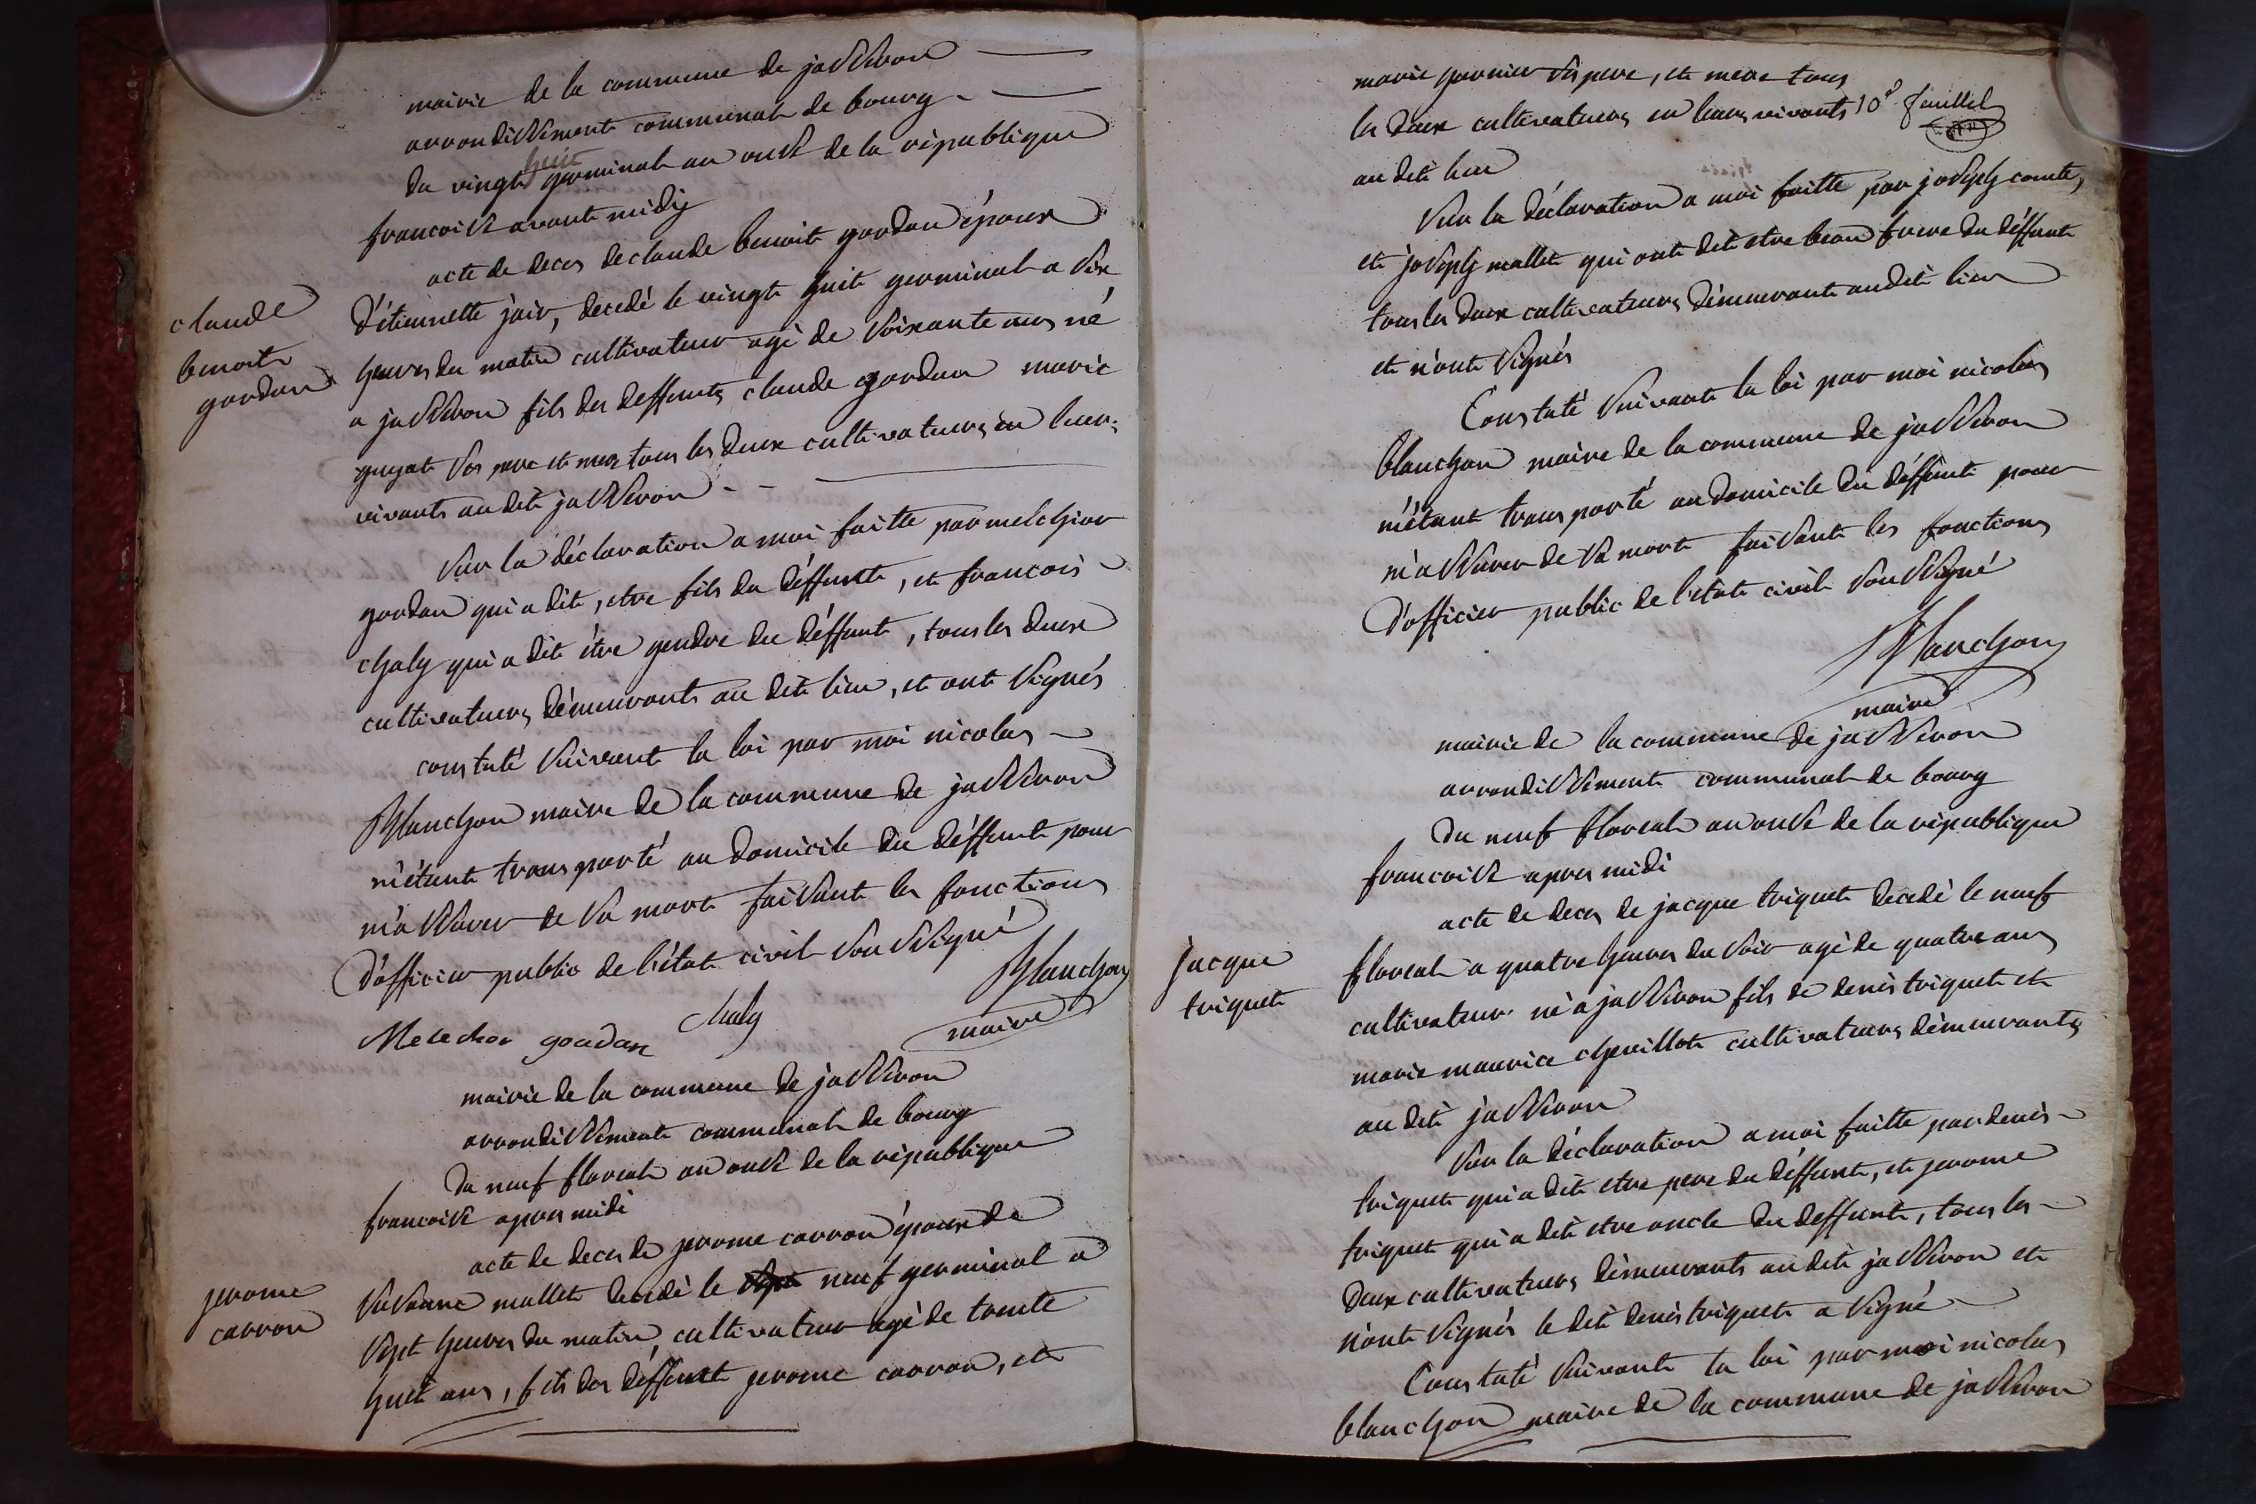 mairie de la commune de jasseron
arrondissement communal de bourg
du vingt huit germinal an onse de la république
francoise avant midy
acte de deces de claude benoit gordan époux
claude
benoit
gordan
d'étiennette jair, decedé le vingt huit germinal a six
heures du matin cultivateur agé de soixante ans né
a jasseron fils des deffunts claude gordan marie
guyat ses pere et mere tous les deux cultivateurs en leur
vivants au dit jasseron
Sur la déclaration a moi faitte par melchior
gordan qui a dit, etre fils du déffunt, et francois
chaly qui a dit étre gendre du déffunt, tous les deux
cultivateurs démeurants au dit lieu, et ont signés
constaté suivant la loi par moi nicolas
Blanchon maire de la commune de jasseron
m'étant transporté au domicile du déffunt pour
m'assurer de sa mort faisant les fonctions
d'officier public de l'état civil soussigné
Blanchon
maire
Melechor goudan chaly
mairie de la commune de jasseron
arrondissement communal de bourg
du neuf floreal an onse de la république
francoise apres midi
acte de deces de jerome carron époux de
jerome
carron
susanne mallet decedé le neuf germinal a
sept heures du matin, cultivateur agé de trente
huit ans, fils des déffunt jerome carron, et
marie garnier ses pere, et mere tous
les deux cultivateurs en leurs vivants 10e feuillet
au dit lieu
Sur la déclaration a moi faitte par joseph comte,
et joseph mallet qui ont dit etre beau frere du déffunt
tous les deux cultivateurs démeurant audit lieu
et n'ont signés
Constaté suivant la loi par moi nicolas
blanchon maire de la commune de jasseron
m'étant transporté au domicile du déffunt pour
m'assurer de sa mort faisant les fonctions
d'officier public de l'état civil soussigné
Blanchon
maire
mairie de la commune de jasseron
arrondissement communal de bourg
du neuf floreal an onse de la république
francoise apres midi
acte de deces de jacque triquet decedé le neuf
jacque
triquet
floreal a quatre heures du soir agé de quatre ans
cultivateur né a jasseron fils de denis triquet et
marie maurice chevillot cultivateurs démeurants
au dit jasseron
Sur la déclaration a moi faitte par denis
triquet qui a dit etre pere du déffunt, et jerome
triquet qui a dit etre oncle du deffunt, tous les
deux cultivateurs démeurants au dit jasseron et
n'ont signés le dit denis triquet a signé
Constaté suivant la loi par moi nicolas
blanchon maire de la commune de jasseron